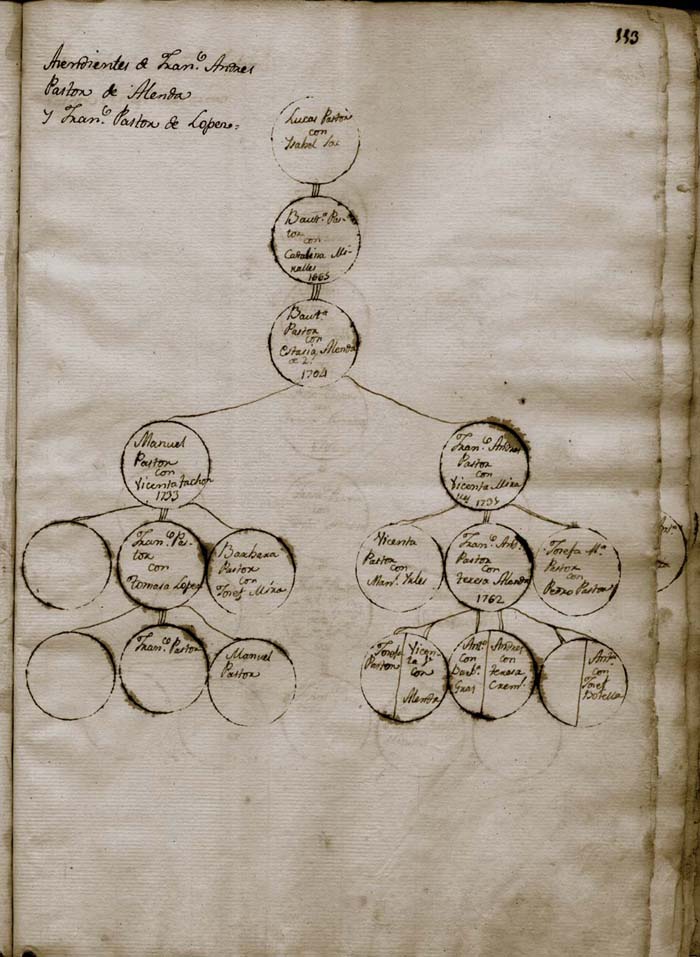 113
Acendientes de Fran.co Andres
Pastor de Alenda
y Fran.co Pastor de Lopez=
Lucas Pastor
con
Ysabel
Baut.a Pas-
tor
con
Catalina Mi-
ralles
1665
Baut.a
Pastor
con
Estasia Alenda
de 2.
1704
Manuel
Pastor
con
Vicenta
1733
Fran.co Andres
Pastor
con
Vicenta Mira
1735
Fran.co Pas-
tor
con
Tomasa Lopez
Barbara
Pastor
con
Josef Mira
Vicenta
Pastor
con
Man.l
Fran.co And.s
Pastor
con
teresa Alenda
1762
Josefa M.a
Pastor
con
Pedro Pastor
Fran.co Pastor
Manuel
Pastor
Josefa
Pastor
Vicen-
ta
con
Alenda
Ant.o
con
Barb.a
Gras
Andres
con
teresa
Ant.a
con
Josef
Botella